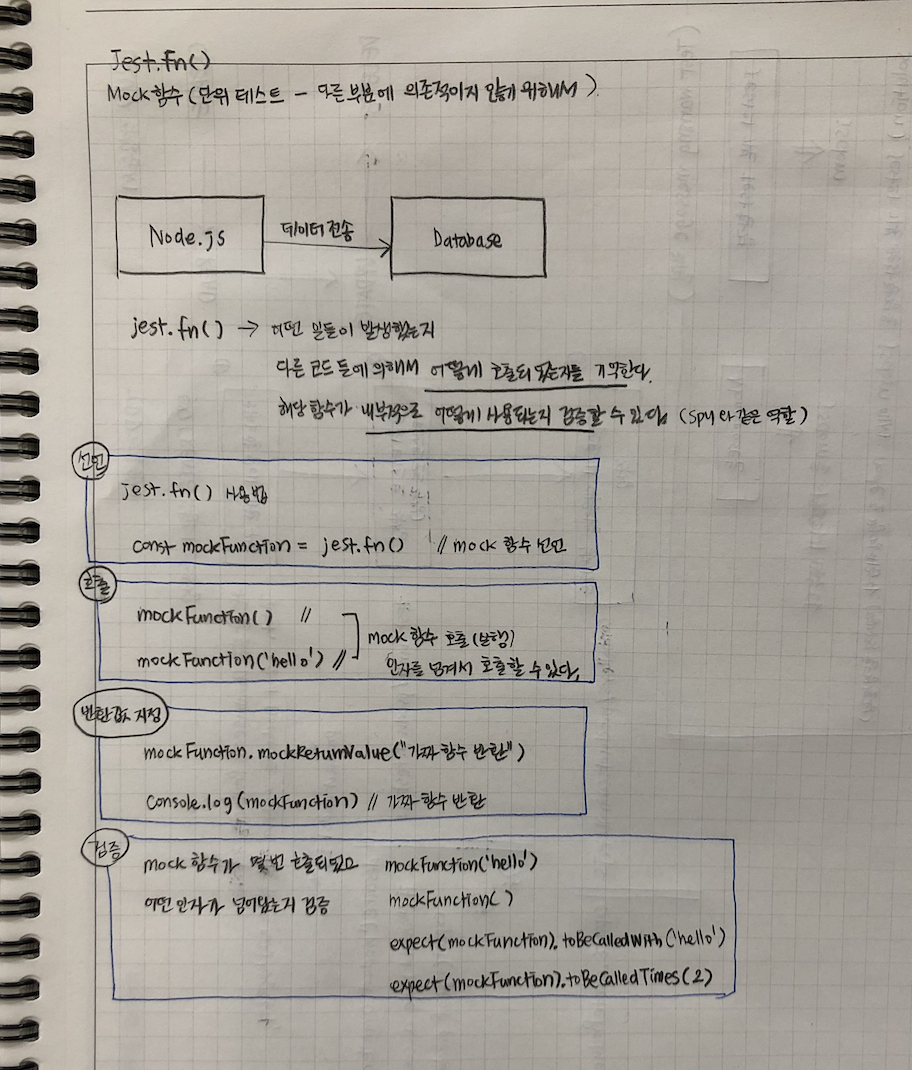 Jest.fn()
Mock 함수 (단위 테스트 - 다른 부분에 의존적이지 않기 위해서)
Node.js
데이터 전송
Database
jest.fn() → 어떤 일들이 발생했는지
다른 코드들에 의해서 어떻게 호출되었는지를 기억한다.
해당 함수가 내부적으로 어떻게 사용되는지 검증할 수 있다. (spy와 같은 역할)
선언
jest.fn() 사용법
const mockFunction = jest.fn() // mock 함수 선언
호출
mockFunction() //
mockFunction('hello') //
mock 함수 호출 (실행)
인자를 넘겨서 호출할 수 있다.
반환값 지정
mockFunction.mockReturnValue("가짜 함수 반환")
console.log(mockFunction) // 가짜 함수 반환
검증
mock 함수가 몇번 호출되었고
어떤 인자가 넘어왔는지 검증
mockFunction('hello')
mockFunction()
expect(mockFunction).toBeCalledWith('hello')
expect(mockFunction).toBeCalledTimes(2)